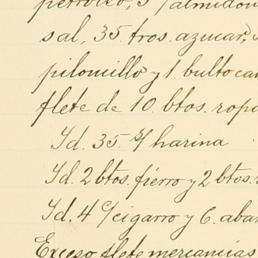 petroleo, 3 % almidon
sal, 35 tros. azucar,
piloncillo y 1 bulto can
flete de 10 btos. ropa
Id. 35 % harina
Id. 2 btos. fierro y 2 btos.
Id. 4 % cigarro y 6. abar
Exceso flete mercancias